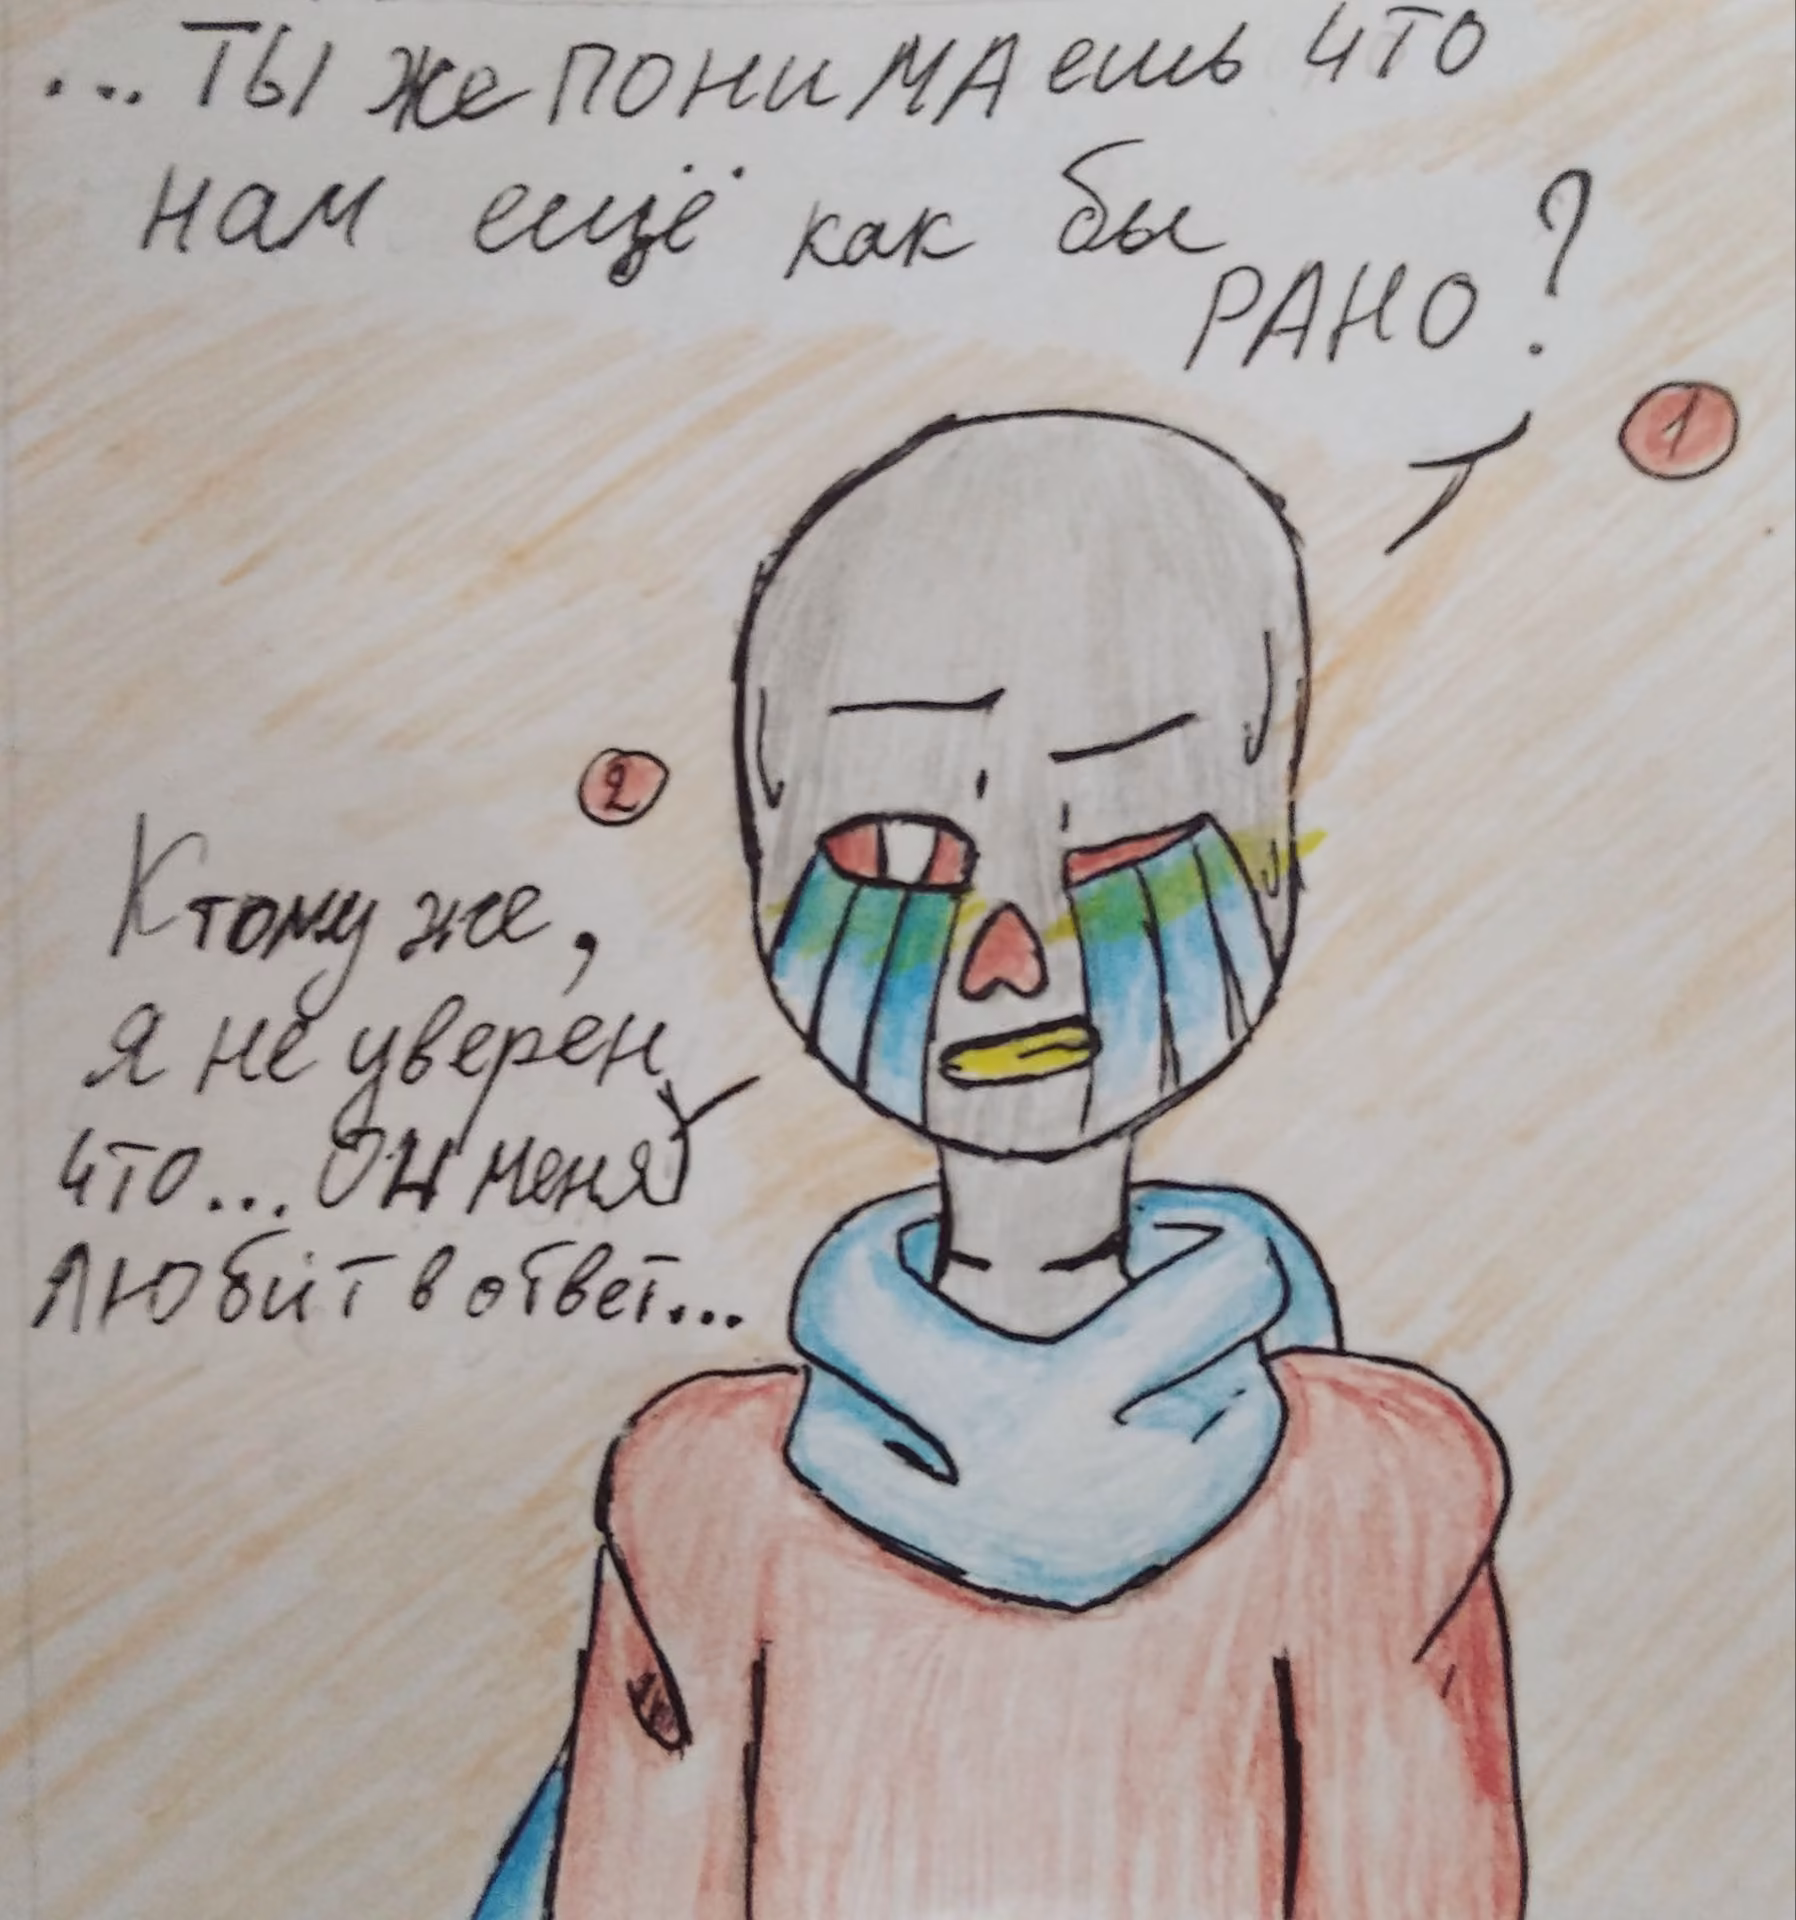 ...Ты же понимаешь что
нам ещё как бы
рано?
1
2
К тому же,
я не уверен
что... Он меня
любит в ответ...